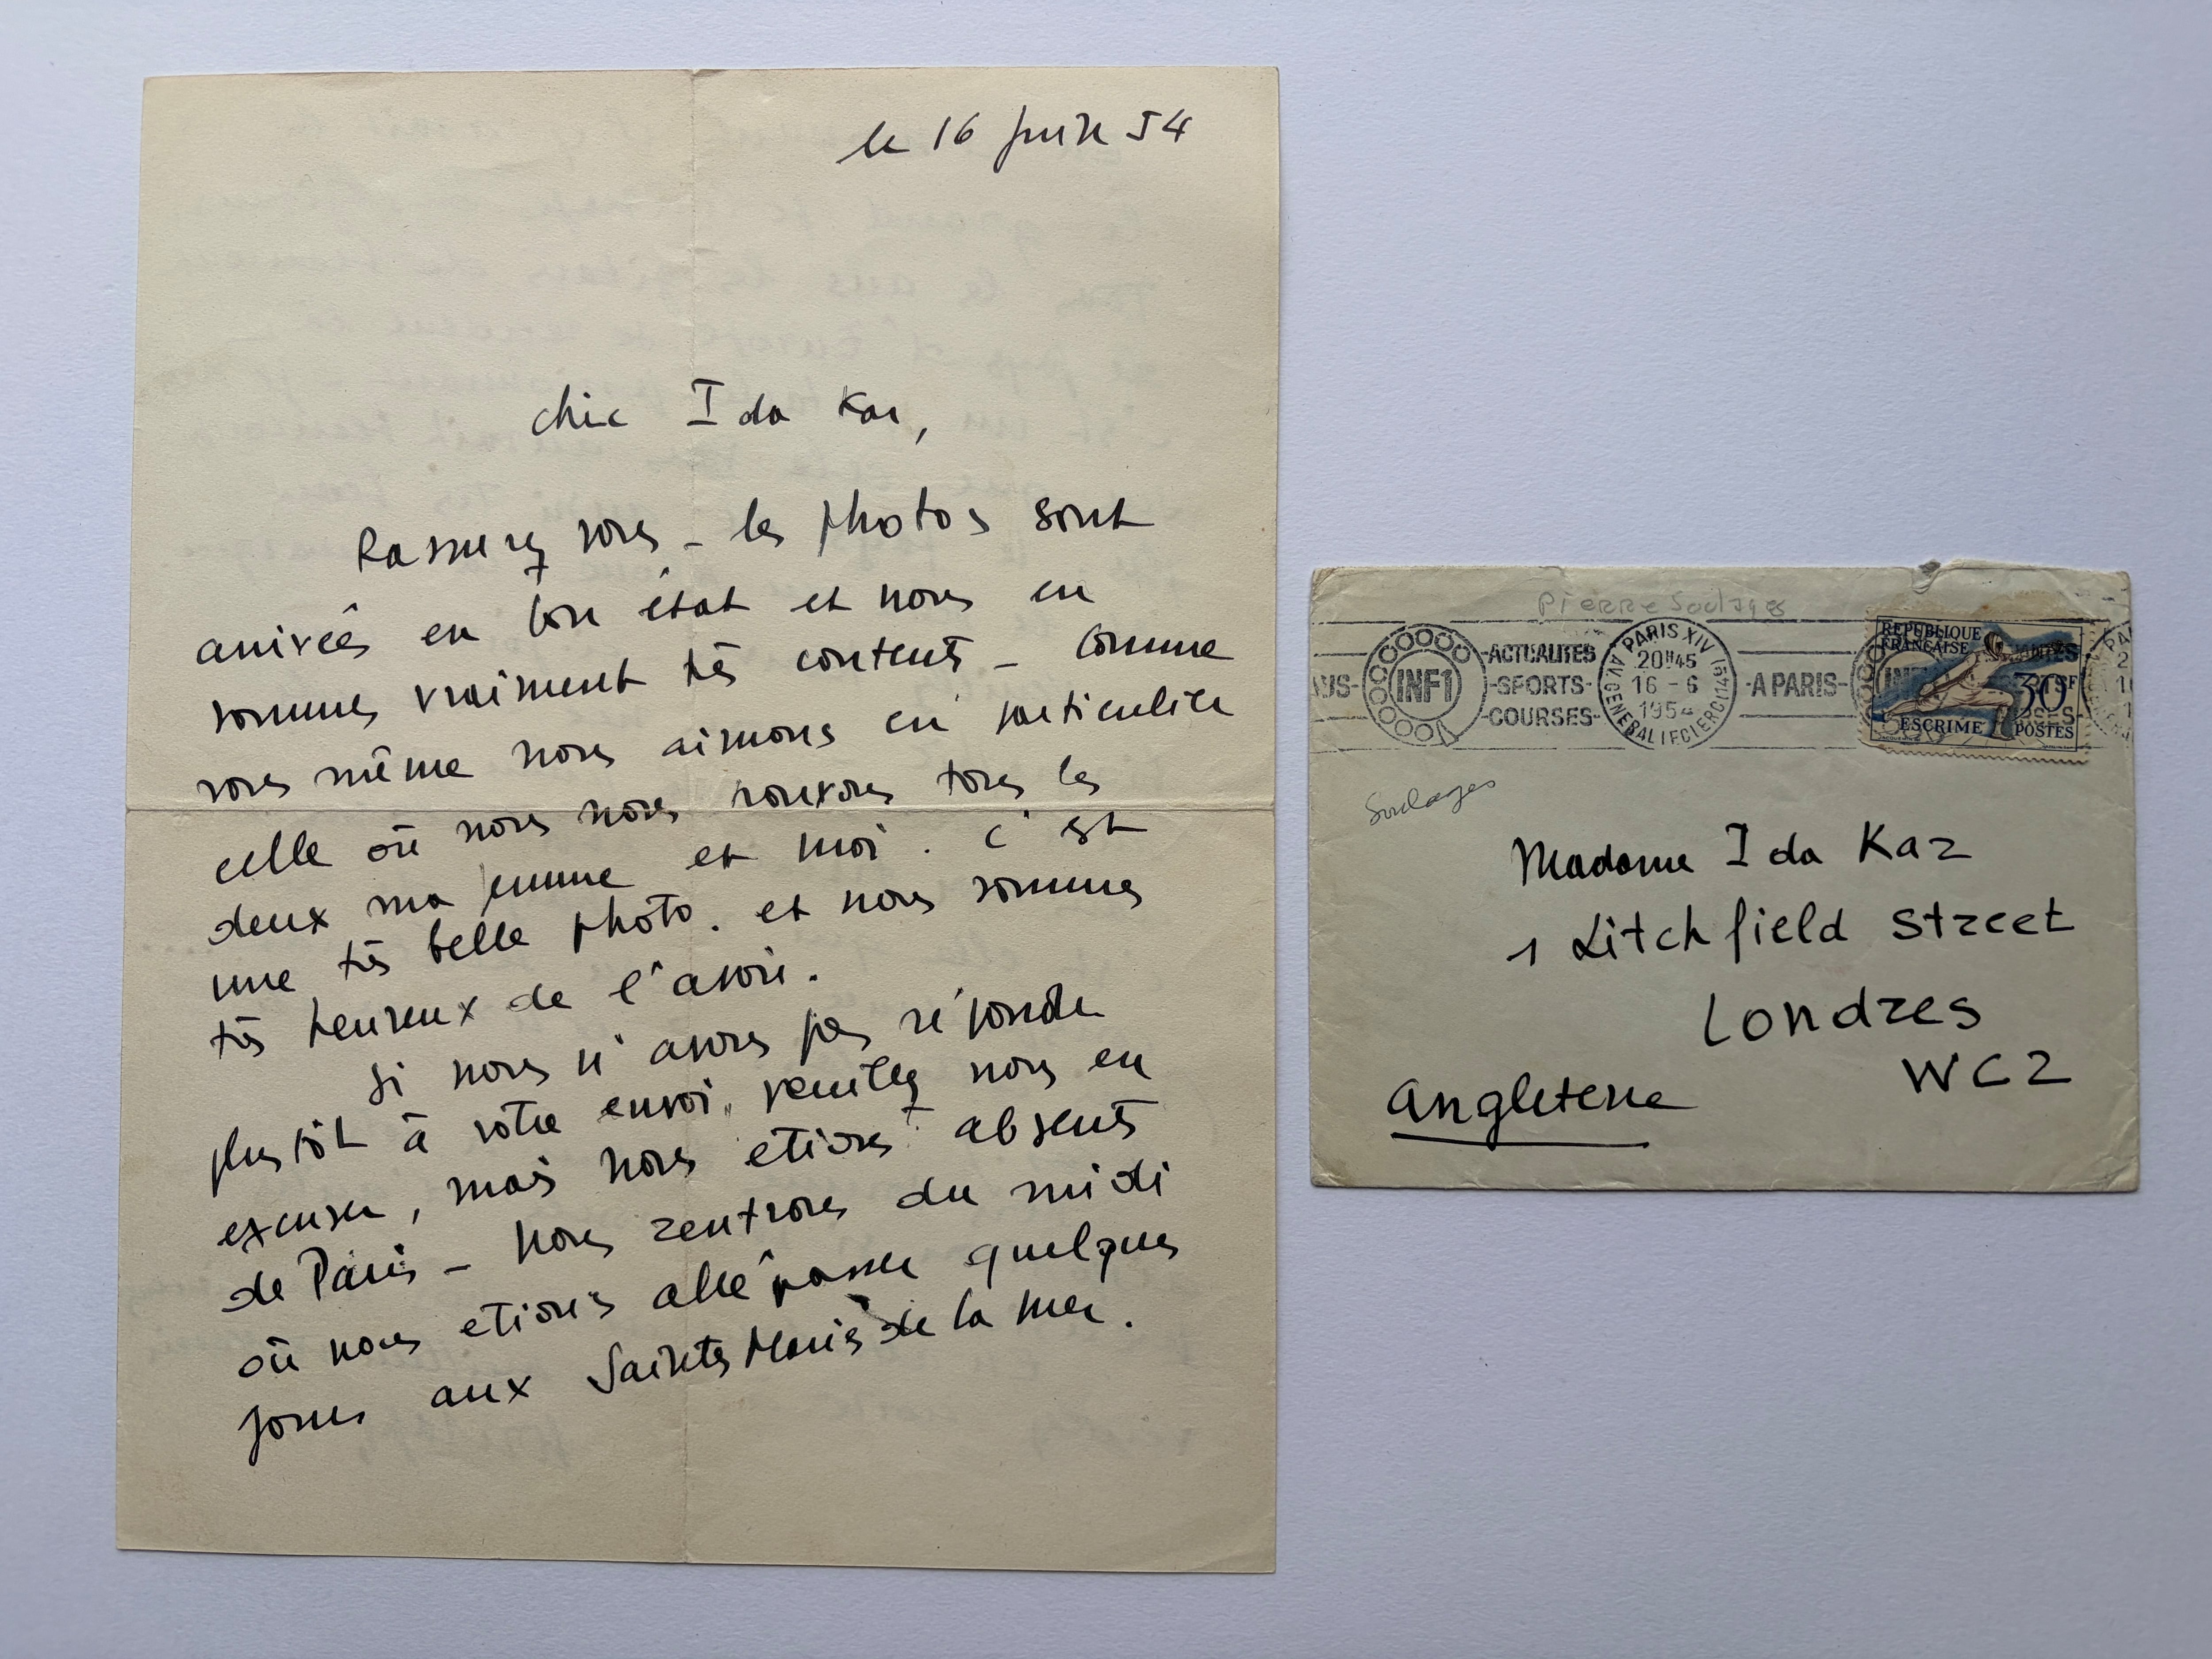 le 16 juin 54
chère Ida Kar,
Rassurez vous - les photos sont
arrivées en bon état et nous en
sommes vraiment très contents - Comme
vous même nous aimons en particulier
celle où nous nous trouvons tous les
deux ma femme et moi. C'est
une très belle photo. et nous sommes
très heureux de l'avoir.
Si nous n'avons pas répondu
plus tôt à votre envoi, veuillez nous en
excuser, mais nous etions absents
de Paris - nous rentrons du midi
où nous etions allé passer quelques
jours aux Saintes Maries de la Mer.
Pierre Soulages
INF1
-ACTUALITES
-SPORTS-
-COURSES-
PARIS XIV
20H45
16 - 6
1954
AV. GENERAL LECLERC (14E)
-A PARIS-
REPUBLIQUE
FRANÇAISE
30F
ESCRIME
POSTES
Soulages
Madame Ida Kar
1 Litchfield Street
Londres
WC2
Angleterre